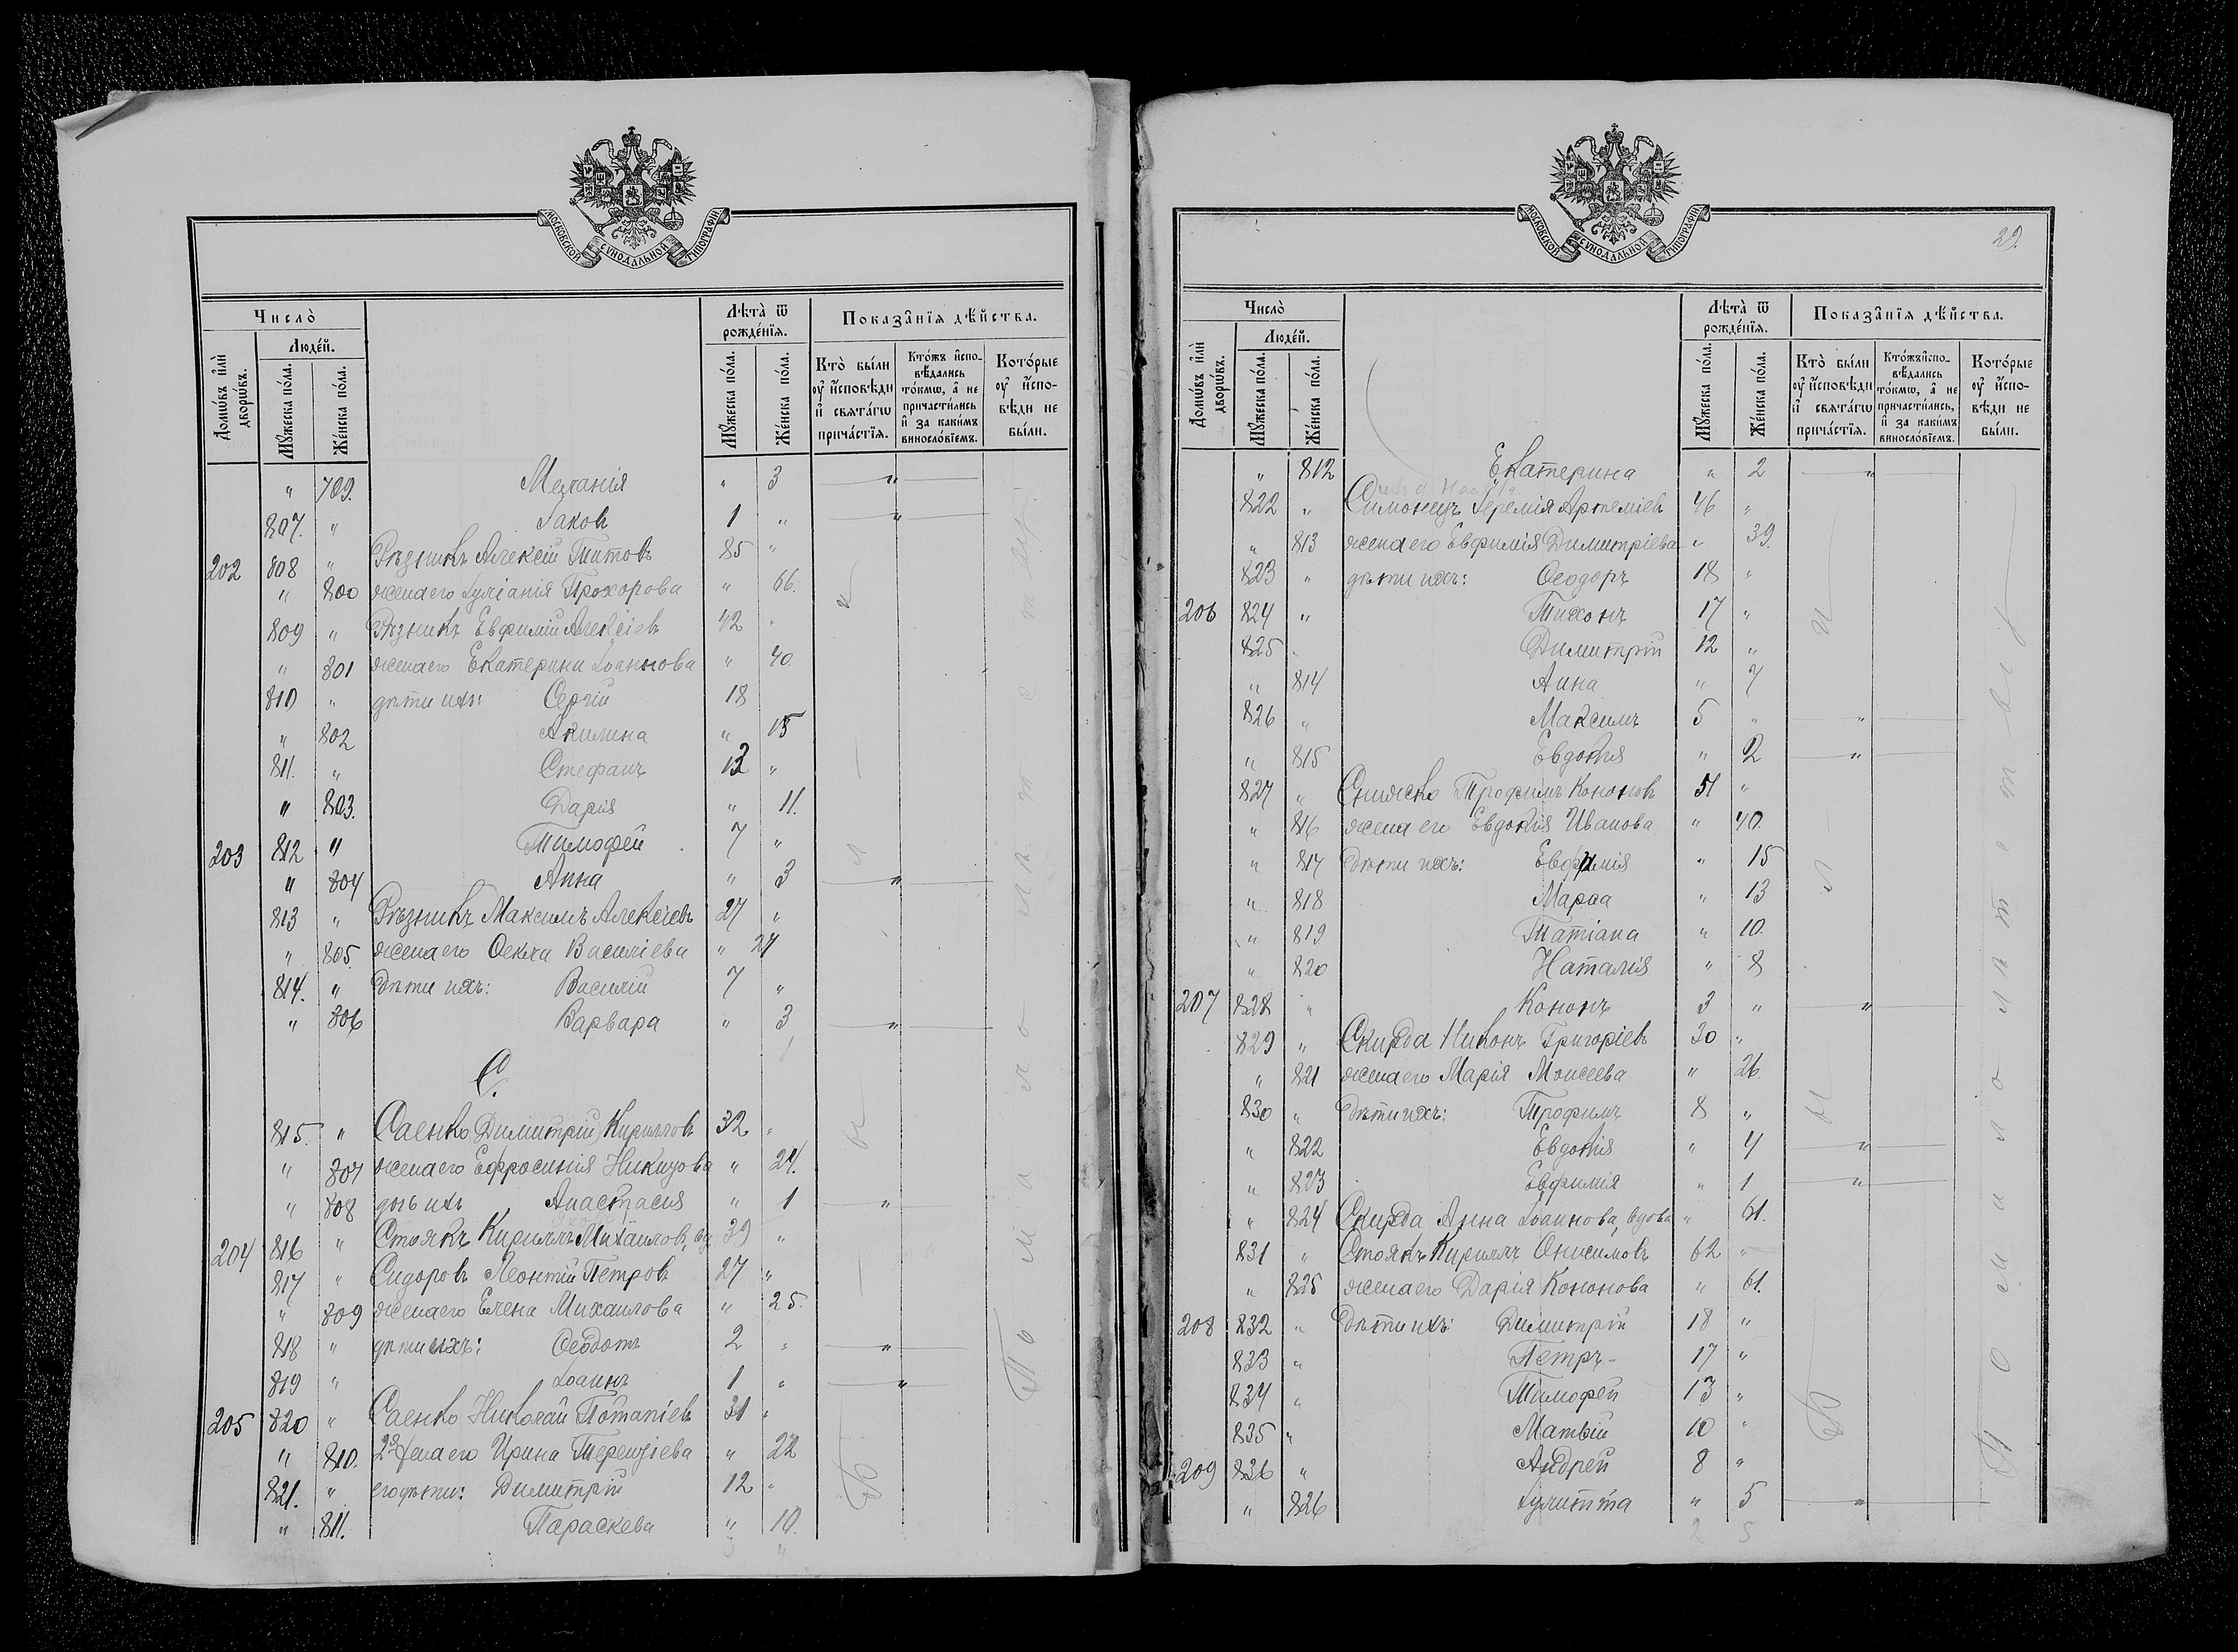 МОСКОВСКОЙ СѴНОДАЛЬНОЙ ТИПОГРАФІИ
Число̀
Лѣта̀ ѿ рождéнїя.
Показáнїя дѣ́йства.
Домѡ́въ и҆лѝ дворѡ́въ.
Людéй.
Мꙋ́жеска по́ла.
Же́нска по́ла.
Мꙋ́жеска по́ла.
Же́нска по́ла.
Кто̀ бы́ли ᲂу҆ и҆сповѣди и҆ свята́гѡ прича́стїя.
Кто́жъ и҆споѣвдались то́кмѡ, а҆ не причасти́лись и҆ за каки́мъ винослóвїемъ.
Кото́рые ᲂу҆ и҆сповѣди не бы́ли.
" 799. Меланія " 3 "
807. " Іаковъ 1 " "
202 808 " Рѣзникъ Алексій Титовъ 85 "
" 800 жена его Іуліанія Прохорова " 66.
809 " Рѣзникъ Евфимій Алексіевъ 42 "
" 801 жена его Екатерина Іоаннова " 40.
810 " дѣти ихъ: Сергій 18
" 802 Акилина " 15
811. " Стефанъ 12 "
" 803. Дарія " 11.
203 812 " Тимофей 7 "
" 804 Анна " 3 "
813 " Рѣзникъ Максимъ Алексіевъ 27 "
" 805. жена его Ѳекла Василіева " 27
814. " дѣти ихъ: Василій 7 "
" 806 Варвара " 3 "
С.
815. " Саенко Димитрій Кирилловъ 32 "
" 807 жена его Ефросинія " 27.
" 808 дочь ихъ Анастасія " 1 "
204 816 " Стоякъ Кириллъ Михаиловъ, вд 39 "
817 " Сидоровъ Леонтій Петровъ 27 "
" 809 жена его Елена Михаилова " 25.
818 " дѣти ихъ: Ѳеодотъ 2 " "
819 " Іоаннъ 1 " "
205 820 " Саенко Николай Потапіевъ 31 "
" 810. жена его Ирина Терентіева " 22
821. " его дѣти: Димитрій 12 "
" 811. Параскева " 10.
МОСКОВСКОЙ СѴНОДАЛЬНОЙ ТИПОГРАФІИ
29.
Число̀
Лѣта̀ ѿ рождéнїя.
Показáнїя дѣ́йства.
Домѡ́въ и҆лѝ дворѡ́въ.
Людéй.
Мꙋ́жеска по́ла.
Же́нска по́ла.
Мꙋ́жеска по́ла.
Же́нска по́ла.
Кто̀ бы́ли ᲂу҆ и҆сповѣди и҆ свята́гѡ прича́стїя.
Кто́жъ и҆сповѣдались то́кмѡ, а҆ не причасти́лись, и҆ за каки́мъ винослóвїемъ.
Кото́рые ᲂу҆ и҆сповѣди не бы́ли.
" 812 Екатерина " 2 "
822 " Симонецъ Іеремія Артеміевъ 46 "
" 813 жена его Евфимія Димитріева " 39.
823 " дѣти ихъ: Ѳеодоръ 18 "
206 824 " Тихонъ 17 "
825 " Димитрій 12 "
" 814 Анна " 7
826 " Максимъ 5 " "
" 815 Евдокія " 2 "
827 " Трофимъ Кононовъ 51 "
" 816 жена его Евдокія Иванова " 40.
" 817 дѣти ихъ: Евфимія " 15
" 818 Марѳа " 13
" 819 Татіана " 10.
" 820 Наталія " 8
207 828 " Кононъ 3 " "
829 " Скирда Никонъ Григоріевъ 30 "
" 821 жена его Марія Моисеева " 26.
830 " дѣти ихъ: Трофимъ 8 "
" 822 Евдокія " 4 "
" 823 Евфимія " 1 "
" 824 Скирда Анна Іоаннова, вдова " 61.
831 " Стоякъ Кириллъ Онисимовъ 62 "
" 825 жена его Дарія Кононова " 61.
208 832 " дѣти ихъ: Димитрій 18 "
833 " Петръ 17 "
834 " Тимофей 13 "
835 " Матвій 10 "
209 836 " Андрей 8 "
" 826 Іулитта " 5 "